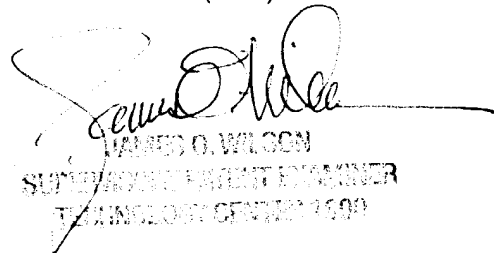 James O. Wilson
JAMES O. WILSON
SUPERVISORY PATENT EXAMINER
TECHNOLOGY CENTER